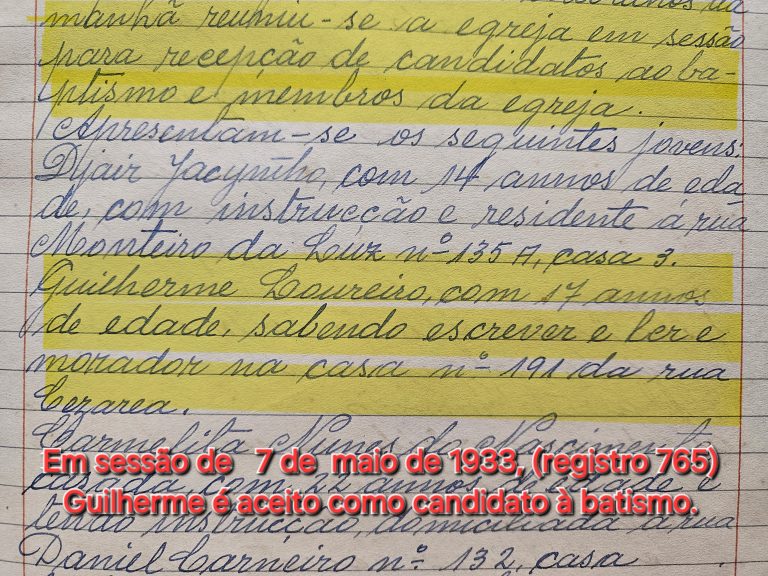 manhã reuniu-se a egreja em sessão
para recepção de candidatos ao ba-
ptismo e membros da egreja.
Apresentam-se os seguintes jovens:
Djair Jacyntho, com 14 annos de eda
de, com instrucção e residente á rua
Monteiro da Luz nº 135 A, casa 3.
Guilherme Loureiro, com 17 annos
de edade, sabendo escrever e ler e
morador na casa nº 191 da rua
Cezarea.
Carmelita Nunes do Nascimento
Em sessão de 7 de maio de 1933, (registro 765)
casada, com 22 annos de edade e
Guilherme é aceito como candidato à batismo.
tendo instrucção, domiciliada á rua
Daniel Carneiro nº 132, casa